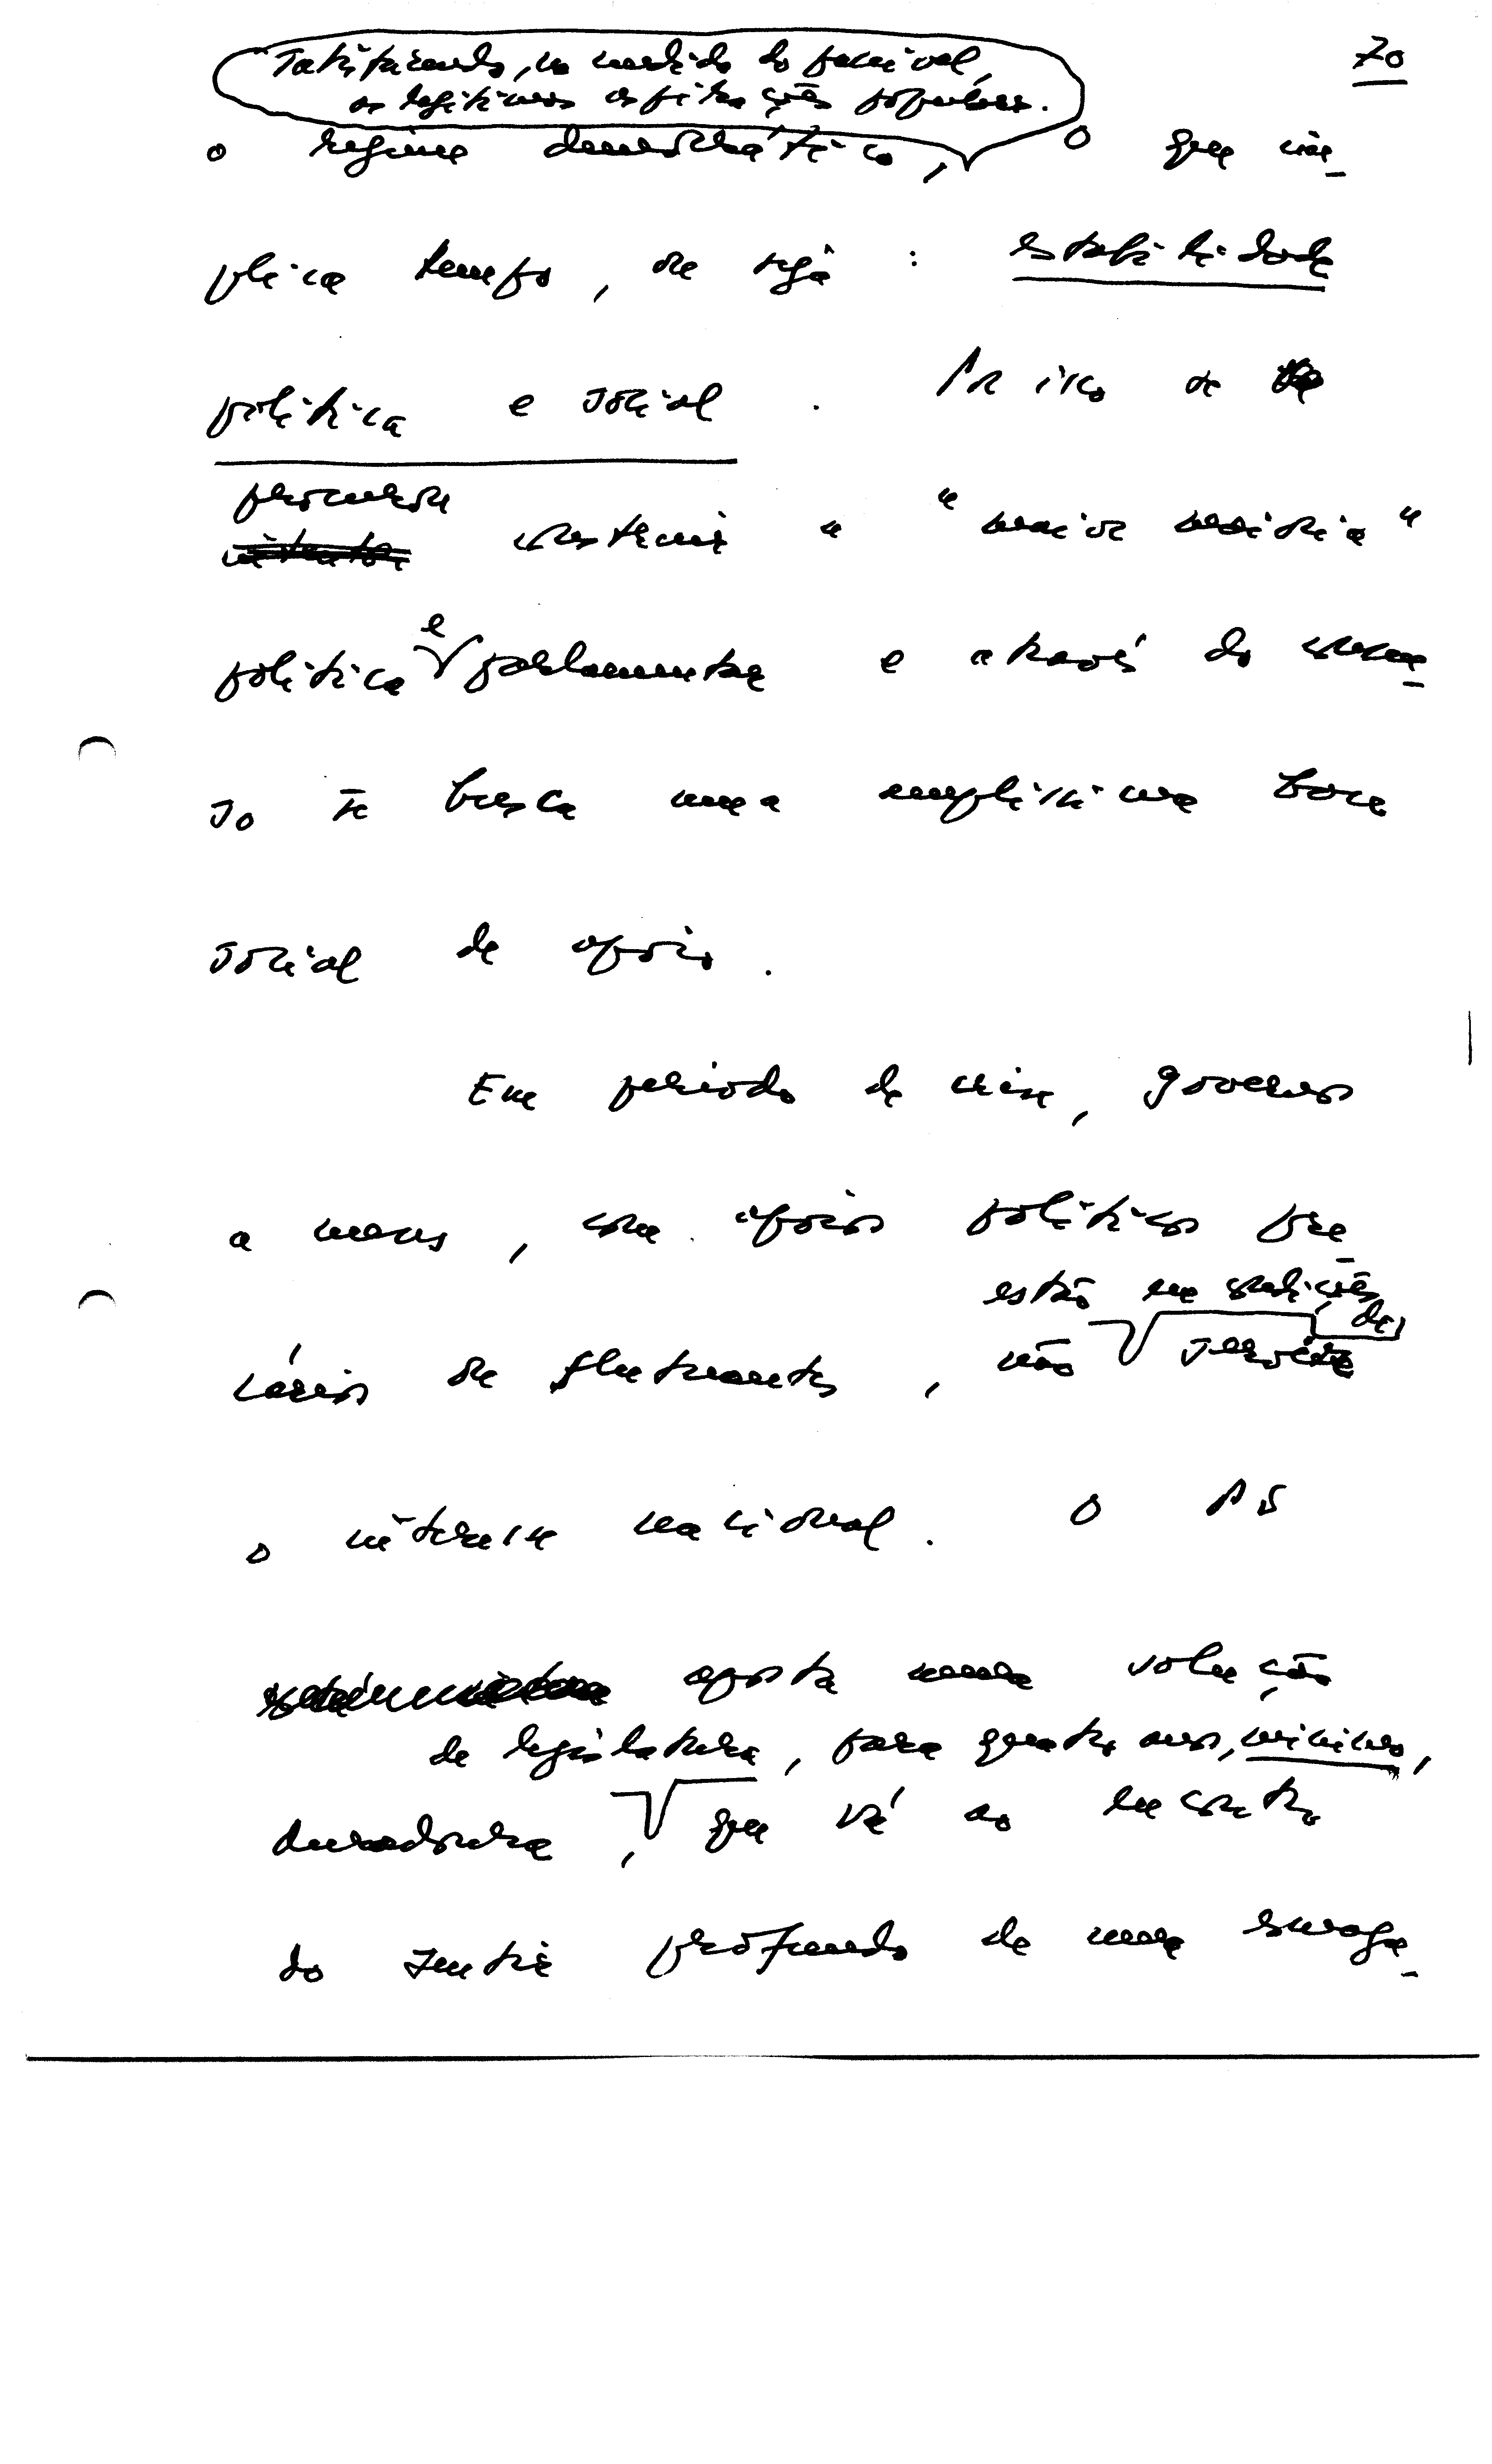 70
satisfazendo, na medida do possível,
as legítimas aspirações populares.
o regime democrático, O que im-
plica tempo, ou seja: estabilidade
política e social. Por isso se
procurou
intentou construir a "maior maioria"
política e parlamentar e através do
so se busca uma amplíssima base
social de apoio.
Em período de crise, governos
a meias, com apoios políticos pre-
estão em condições
de
cários ou flutuantes, não servir
o interesse nacional. O PS
aposta numa solução
de legislatura, para quatro anos, mínimo,
duradoura, que vá ao encontro
do sentir profundo de uma esmaga-